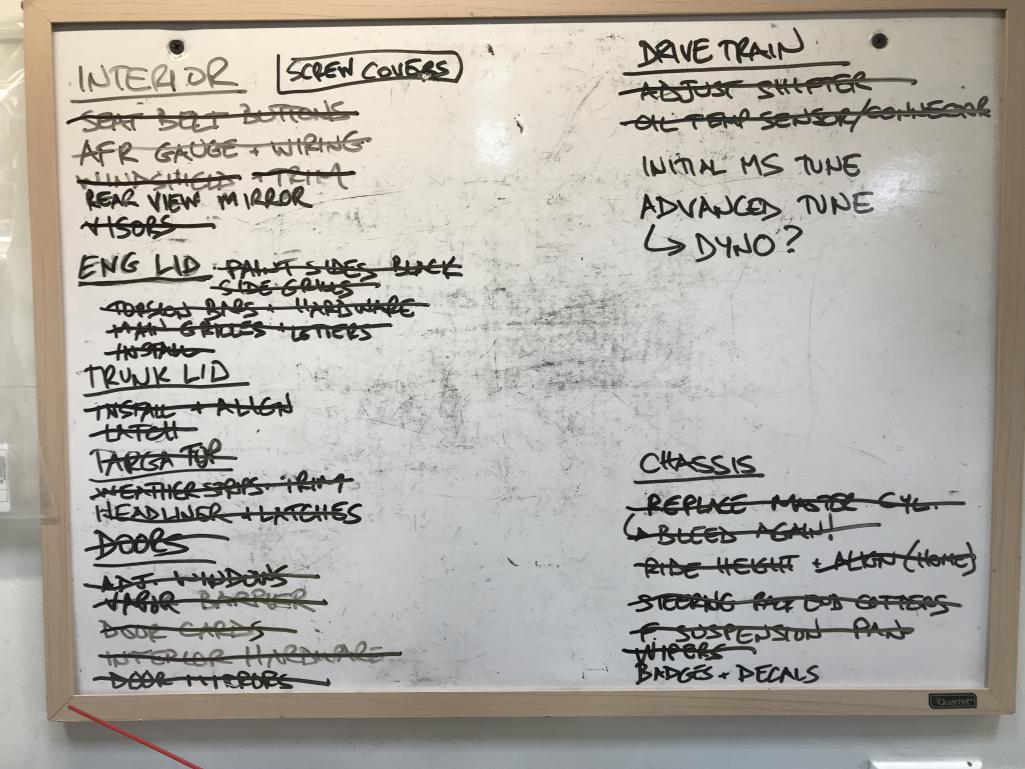 INTERIOR
SCREW COVERS
SEAT BELT BUTTONS
AFR GAUGE + WIRING
WINDSHIELD + TRIM
REAR VIEW MIRROR
VISORS
ENG LID - PAINT SIDES BLACK
SIDE GRILLS
TORSION BARS + HARDWARE
MAIN GRILLES + LETTERS
INSTALL
TRUNK LID
INSTALL + ALIGN
LATCH
TARGA TOP
WEATHERSTRIPS. TRIM
HEADLINER + LATCHES
DOORS
ADJ. WINDOWS
VAPOR BARRIER
DOOR CARDS
INTERIOR HARDWARE
DOOR MIRRORS
DRIVE TRAIN
ADJUST SHIFTER
OIL TEMP SENSOR/CONNECTOR
INITIAL MS TUNE
ADVANCED TUNE
↳ DYNO?
CHASSIS
REPLACE MASTER CYL.
↳ BLEED AGAIN!
RIDE HEIGHT + ALIGN (HOME)
STEERING RACK END COTTERS
F. SUSPENSION PAN
WIPERS
BADGES + DECALS
Quartet